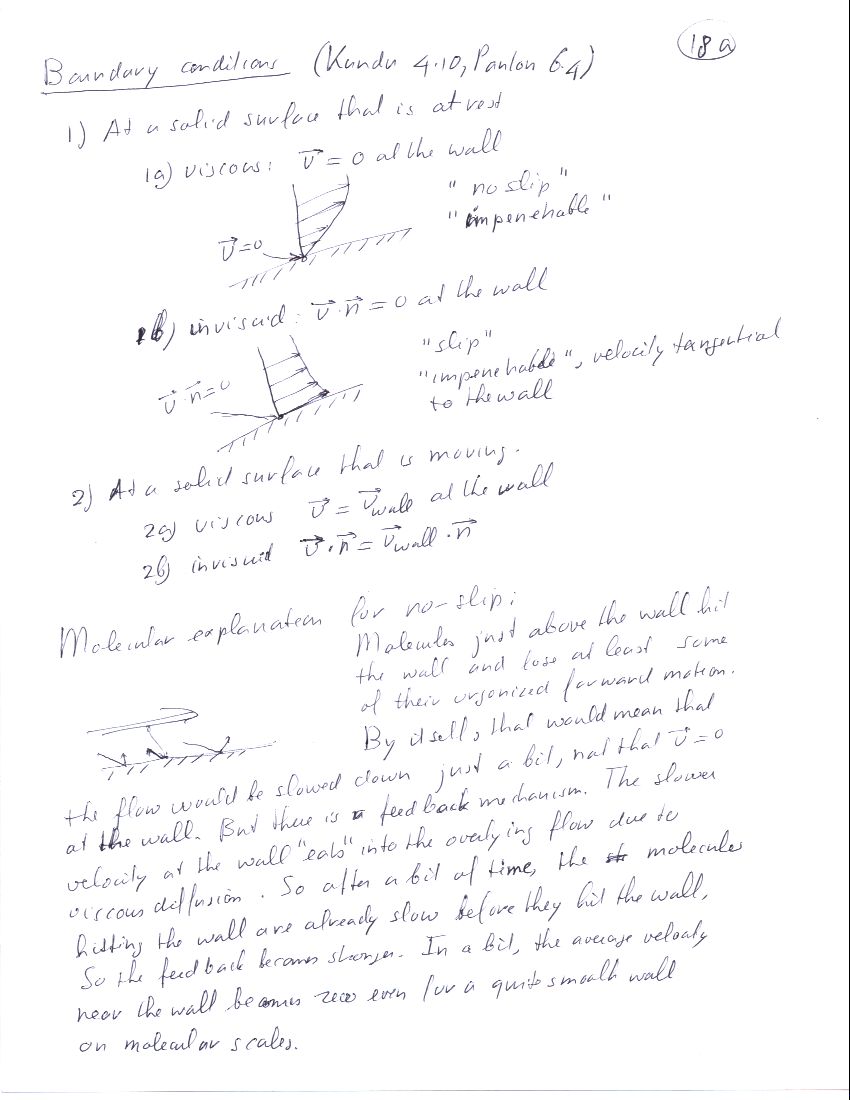 18a
Boundary conditions (Kundu 4.10, Panton 6.4)
1) At a solid surface that is at rest
1a) viscous: v⃗ = 0 at the wall
"no slip"
"impenetrable"
v⃗=0
1b) inviscid: v⃗·n⃗ = 0 at the wall
"slip"
"impenetrable", velocity tangential
to the wall
v⃗·n⃗=0
2) At a solid surface that is moving.
2a) viscous v⃗ = v⃗wall at the wall
2b) inviscid v⃗·n⃗ = v⃗wall·n⃗
Molecular explanation for no-slip:
Molecules just above the wall hit
the wall and lose at least some
of their organized forward motion.
By itself, that would mean that
the flow would be slowed down just a bit, not that v⃗=0
at the wall. But there is a feedback mechanism. The slower
velocity at the wall "eats" into the overlying flow due to
viscous diffusion. So after a bit of time, the molecules
hitting the wall are already slow before they hit the wall,
So the feedback becomes stronger. In a bit, the average velocity
near the wall becomes zero even for a quite smooth wall
on molecular scales.